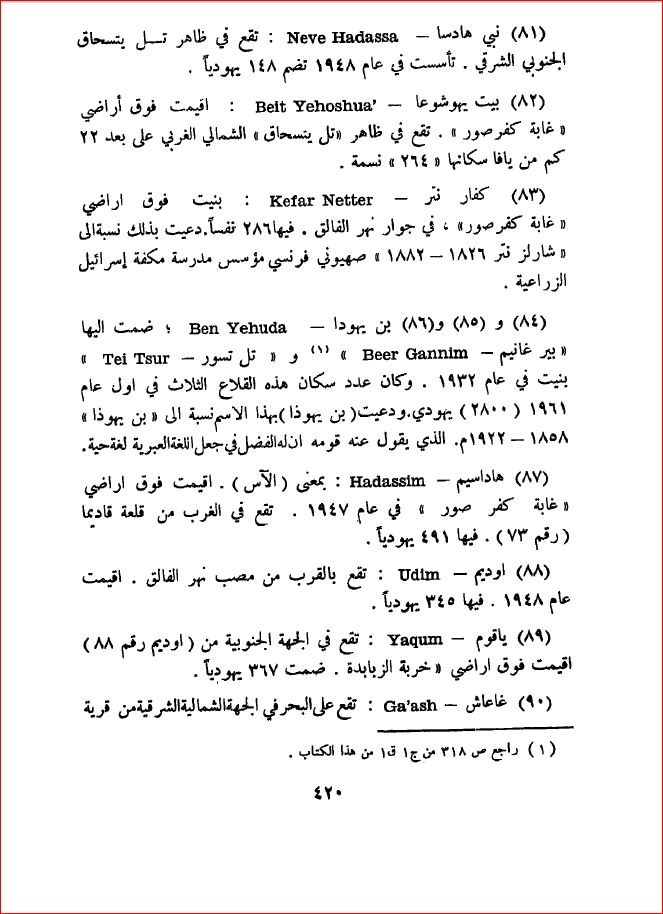 (٨١) نبي هادسا – Neve Hadassa : تقع في ظاهر تـل يتسحاق
الجنوبي الشرقي . تأسست في عام ١٩٤٨ تضم ١٤٨ يهودياً .
(٨٢) بيت يهوشوعا – Beit Yehoshua' : اقيمت فوق أراضي
« غابة كفرصور » . تقع في ظاهر «تل يتسحاق» الشمالي الغربي على بعد ٢٢
كم من يافا سكانها « ٢٦٤ » نسمة .
(٨٣) كفار نتر – Kefar Netter : بنيت فوق اراضي
« غابة كفرصور» ، في جوار نهر الفالق . فيها ٢٨٦ نفساً.دعيت بذلك نسبة الى
« شارلز نتر ١٨٢٦ – ١٨٨٢ » صهيوني فرنسي مؤسس مدرسة مكفة إسرائيل
الزراعية .
(٨٤) و (٨٥) و(٨٦) بن يهودا – Ben Yehuda ؛ ضمت اليها
« بير غانيم – Beer Gannim » (١) و « تل تسور – Tei Tsur »
بنيت في عام ١٩٣٢ . وكان عدد سكان هذه القلاع الثلاث في اول عام
١٩٦١ ( ٢٨٠٠ ) يهودي.ودعيت(بن يهوذا)بهذا الاسم نسبة الى « بن يهوذا »
١٨٥٨ – ١٩٢٢م. الذي يقول عنه قومه ان له الفضل في جعل اللغة العبرية لغة حية.
(٨٧) هاداسيم – Hadassim : بمعنى ( الآس ) . اقيمت فوق اراضي
« غابة كفر صور » في عام ١٩٤٧ . تقع في الغرب من قلعة قاديما
( رقم ٧٣ ) . فيها ٤٩١ يهودياً .
(٨٨) اوديم – Udim : تقع بالقرب من مصب نهر الفالق . اقيمت
عام ١٩٤٨ . فيها ٣٤٥ يهودياً .
(٨٩) ياقوم – Yaqum : تقع في الجهة الجنوبية من ( اوديم رقم ٨٨ )
اقيمت فوق اراضي « خربة الزبابدة . ضمت ٣٦٧ يهودياً .
(٩٠) غاعاش – Ga'ash : تقع على البحر في الجهة الشمالية الشرقية من قرية
( ١ ) راجع ص ٣١٨ من ج١ ق١ من هذا الكتاب .
٤٢٠